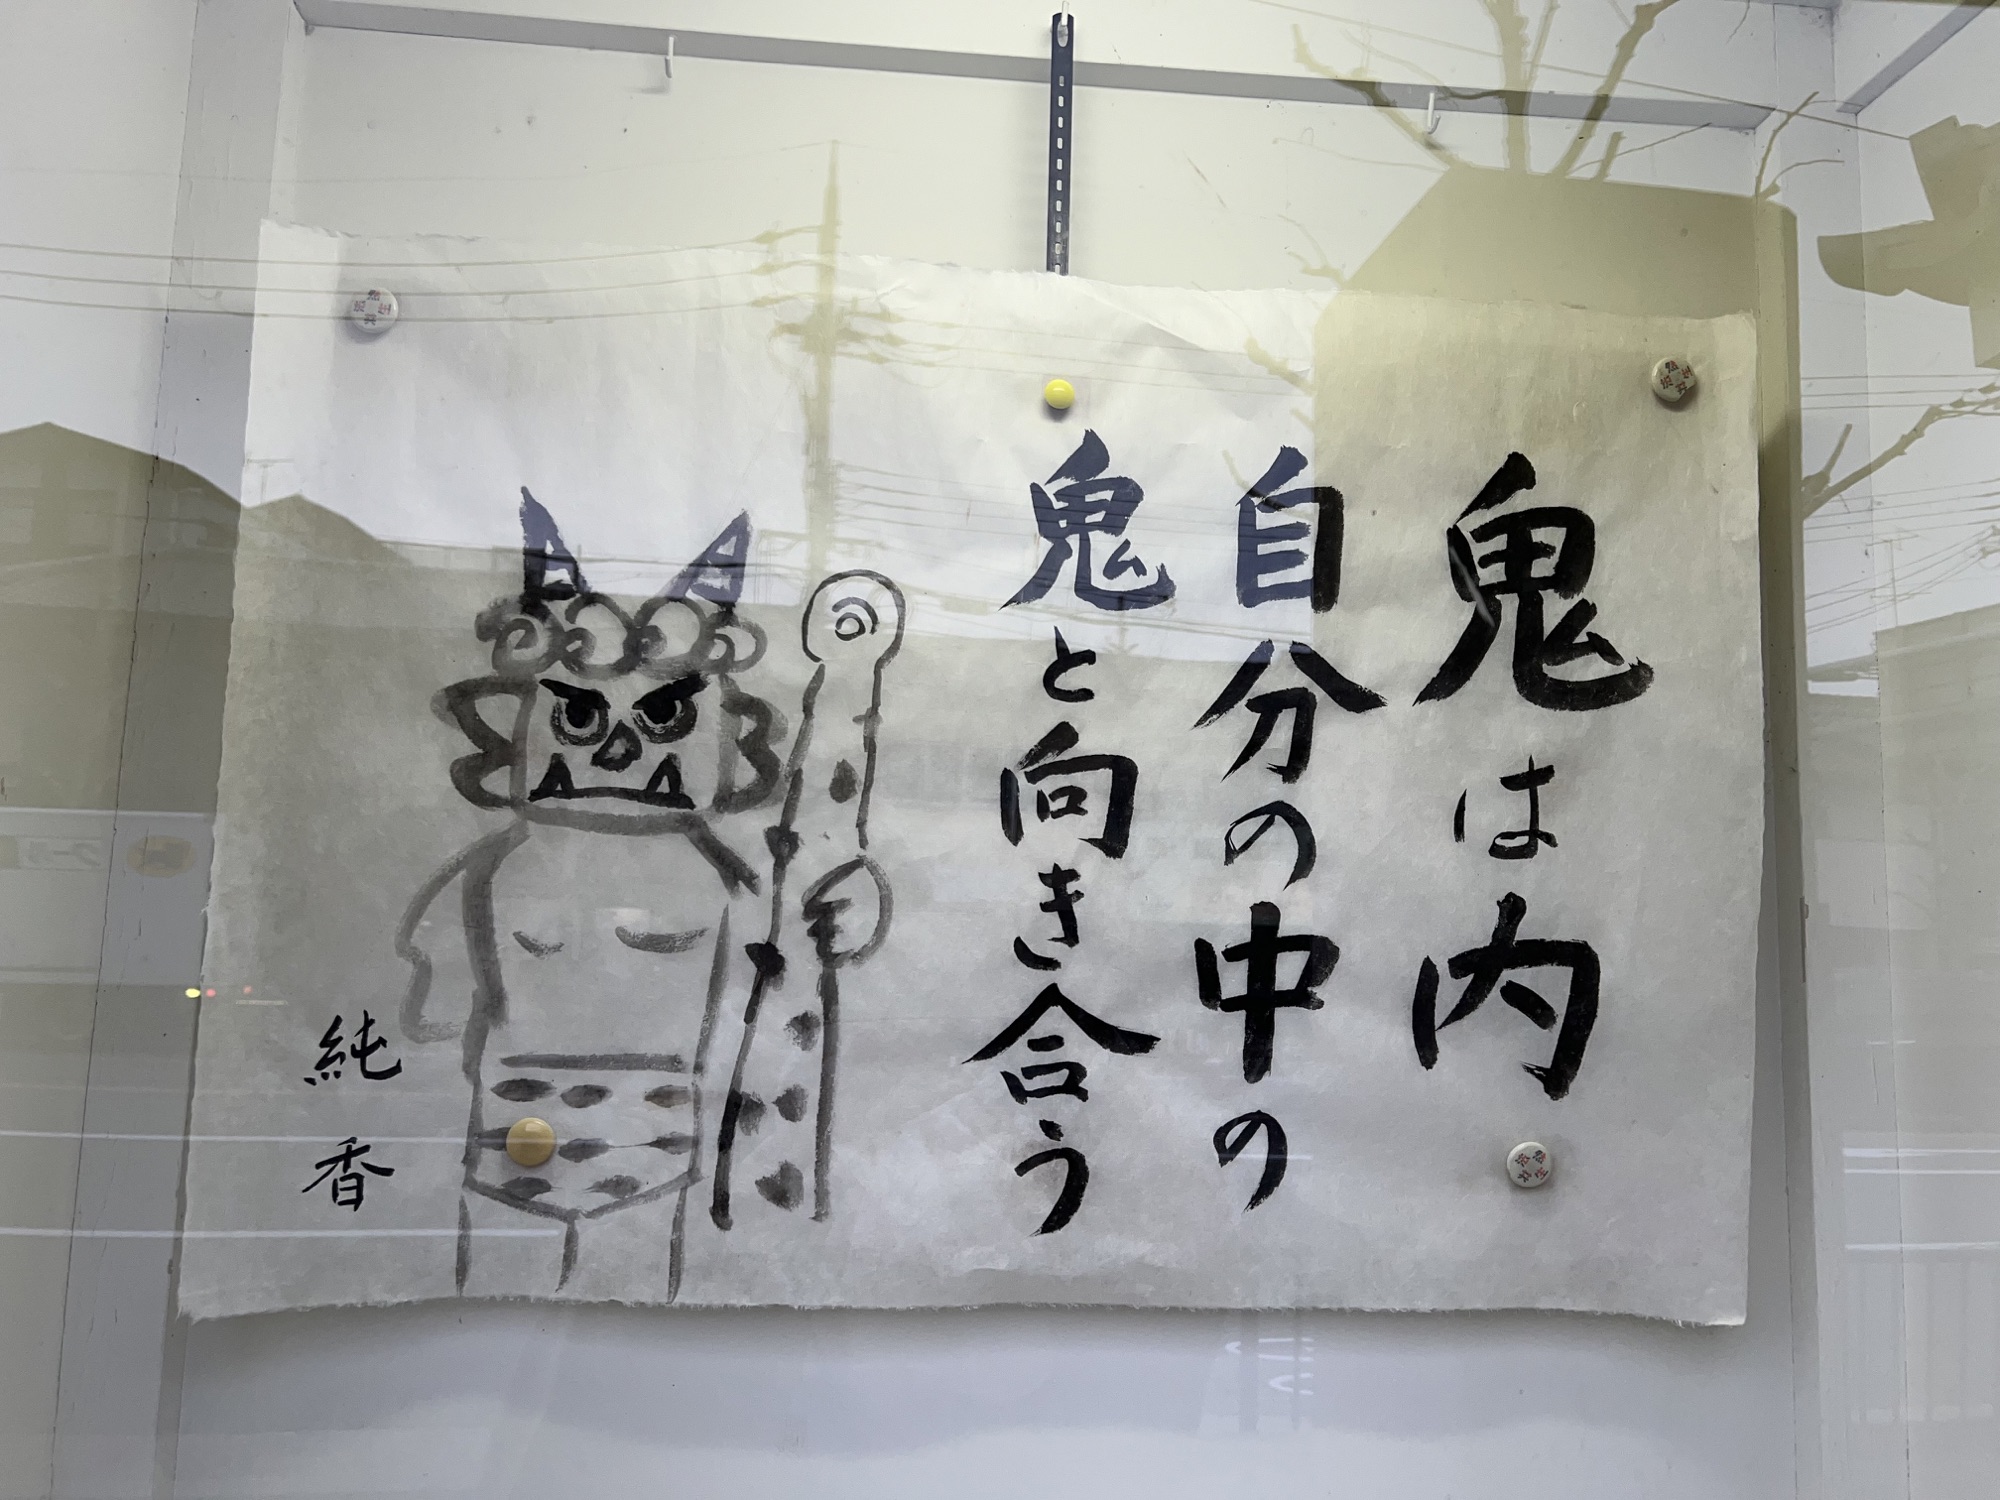 鬼は内
自分の中の
鬼と向き合う
純香